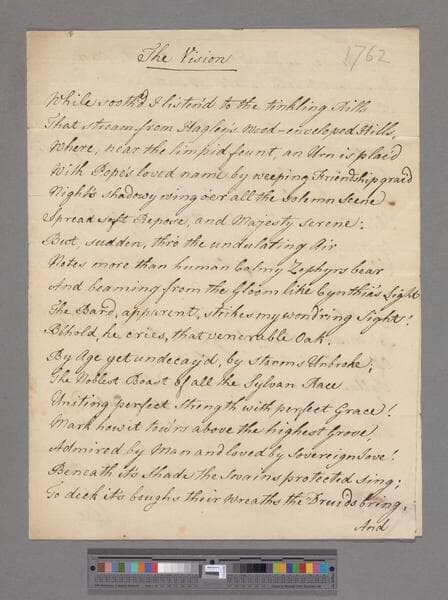 The Vision
1762
While sooth'd I listen'd to the tinkling Rills
That stream from Hagley's Wood-enveloped Hills,
Where, near the limpid fount, an Urn is plac'd
With Pope's loved name by weeping Friendship grac'd
Night's shadowy wing o'er all the Solemn Scene
Spread soft Repose, and Majesty serene:
But, sudden, thro' the undulating Air
Notes more than human balmy Zephyrs bear
And beaming from the Gloom like Cynthia's Light
The Bard, apparent, strikes my wond'ring Sight!
Behold, he cries, that venerable Oak.
By Age yet undecay'd, by storms Unbroke;
The Noblest Boast of all the Sylvan Race
Uniting perfect Strength with perfect Grace!
Mark how it tow'rs above the highest Grove,
Admired by Man and loved by Sovereign Jove!
Beneath it's Shade the Swains protected sing;
To deck it's boughs their Wreaths the Druids bring,
And